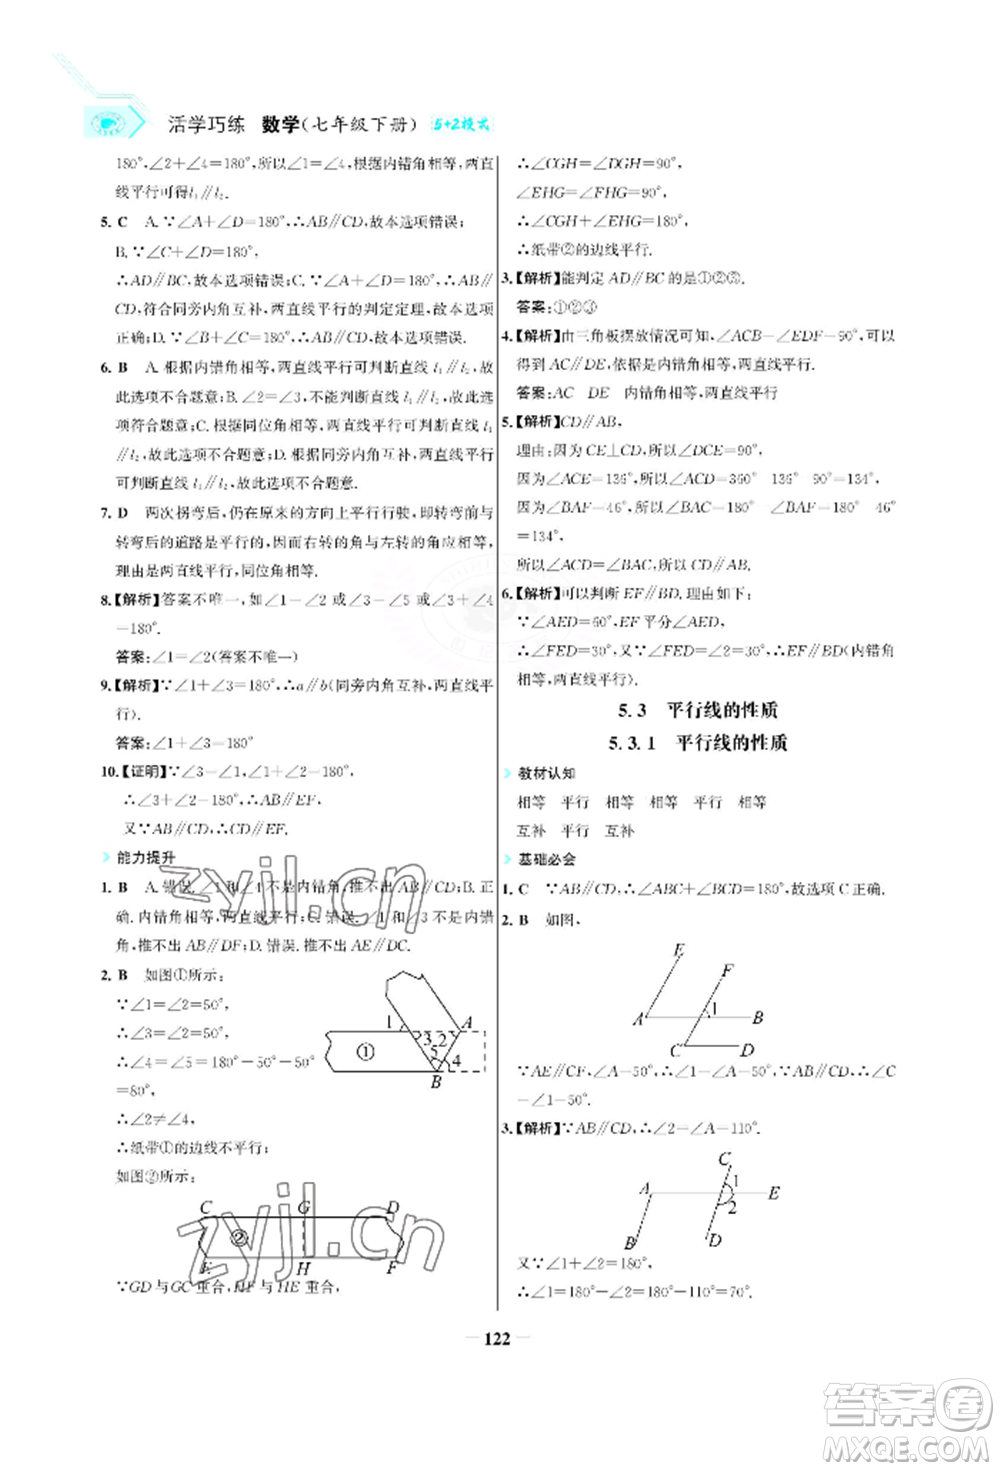 活学巧练 数学(七年级下册) 5+2模式
180°,∠2+∠4=180°,所以∠1=∠4,根据内错角相等,两直
线平行可得l₁∥l₂.
5. C A.∵∠A+∠D=180°,∴AB∥CD,故本选项错误;
B.∵∠C+∠D=180°,
∴AD∥BC,故本选项错误;C.∵∠A+∠D=180°,∴AB∥
CD,符合同旁内角互补,两直线平行的判定定理,故本选项
正确;D.∵∠B+∠C=180°,∴AB∥CD,故本选项错误.
6. B A.根据内错角相等,两直线平行可判断直线l₁∥l₂,故
此选项不合题意;B.∠2=∠3,不能判断直线l₁∥l₂,故此选
项符合题意;C.根据同位角相等,两直线平行可判断直线l₁
∥l₂,故此选项不合题意;D.根据同旁内角互补,两直线平行
可判断直线l₁∥l₂,故此选项不合题意.
7. D 两次拐弯后,仍在原来的方向上平行行驶,即转弯前与
转弯后的道路是平行的,因而右转的角与左转的角应相等,
理由是两直线平行,同位角相等.
8.【解析】答案不唯一,如∠1=∠2或∠3=∠5或∠3+∠4
=180°.
答案:∠1=∠2(答案不唯一)
9.【解析】∵∠1+∠3=180°,∴a∥b(同旁内角互补,两直线平
行).
答案:∠1+∠3=180°
10.【证明】∵∠3=∠1,∠1+∠2=180°,
∴∠3+∠2=180°,∴AB∥EF,
又∵AB∥CD,∴CD∥EF.
能力提升
1. B A.错误.∠1和∠4不是内错角,推不出AB∥CD;B.正
确.内错角相等,两直线平行;C.错误.∠1和∠3不是内错
角,推不出AB∥DF;D.错误.推不出AE∥DC.
2. B 如图①所示:
∵∠1=∠2=50°,
∴∠3=∠2=50°,
∴∠4=∠5=180°-50°-50°
=80°,
∴∠2≠∠4,
∴纸带①的边线不平行;
如图②所示:
1 3 2 A
① 5 4
B
C G D
②
E H F
∵GD与GC重合,HF与HE重合,
∴∠CGH=∠DGH=90°,
∠EHG=∠FHG=90°,
∴∠CGH+∠EHG=180°,
∴纸带②的边线平行.
3.【解析】能判定AD∥BC的是①②③.
答案:①②③
4.【解析】由三角板摆放情况可知,∠ACB=∠EDF=90°,可以
得到AC∥DE,依据是内错角相等,两直线平行.
答案:AC DE 内错角相等,两直线平行
5.【解析】CD∥AB,
理由:因为CE⊥CD,所以∠DCE=90°,
因为∠ACE=136°,所以∠ACD=360° 136° 90°=134°,
因为∠BAF=46°,所以∠BAC=180° ∠BAF=180° 46°
=134°,
所以∠ACD=∠BAC,所以CD∥AB.
6.【解析】可以判断EF∥BD.理由如下:
∵∠AED=60°,EF平分∠AED,
∴∠FED=30°,又∵∠2=30°,∴EF∥BD(内错角
相等,两直线平行).
5.3 平行线的性质
5.3.1 平行线的性质
教材认知
相等 平行 相等 相等 平行 相等
互补 平行 互补
基础必会
1. C ∵AB∥CD,∴∠ABC+∠BCD=180°,故选项C正确.
2. B 如图,
E F
1
A B
C D
∵AE∥CF,∠A=50°,∴∠1=∠A=50°,∵AB∥CD,∴∠C
=∠1=50°.
3.【解析】∵AB∥CD,∴∠2=∠A=110°.
C
1
A E
2
B D
又∵∠1+∠2=180°,
∴∠1=180°-∠2=180°-110°=70°.
122
zyjl.cn
zyjl.cn
答案圈
MXQE.COM